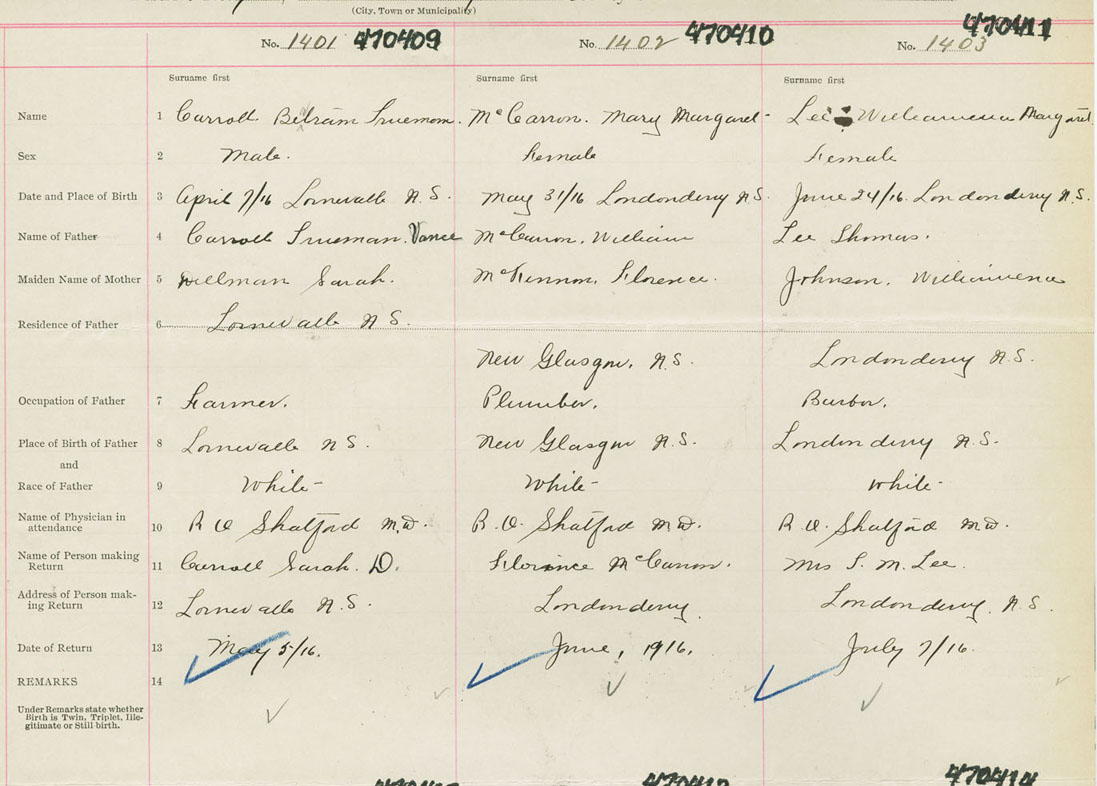 (City, Town or Municipality)
No. 1401 470409 No. 1402 470410 No. 1403 470411
Surname first Surname first Surname first
Name 1 Carroll Beltram Trueman. McCarron. Mary Margaret Lee Williamena Margaret
Sex 2 Male. Female Female
Date and Place of Birth 3 April 7/16 Lornevalle N.S. May 31/16 Londonderry N.S. June 24/16. Londonderry N.S.
Name of Father 4 Carroll Trueman. Vance McCarron, William Lee Thomas.
Maiden Name of Mother 5 Sarah. McKennon, Florence. Johnson, Williamena
Residence of Father 6 Lornevalle N.S.
New Glasgow, N.S. Londonderry N.S.
Occupation of Father 7 Farmer. Plumber. Barbor.
Place of Birth of Father 8 Lornevalle N.S. New Glasgow N.S. Londonderry N.S.
and
Race of Father 9 White White White
Name of Physician in
attendance 10 R O Shatford M.D. R. O. Shatford M.D. R O. Shatford M.D.
Name of Person making
Return 11 Carroll Sarah. D. Florence McCarron. Mrs T. M. Lee.
Address of Person mak-
ing Return 12 Lornevalle N.S. Londonderry Londonderry, N.S.
Date of Return 13 May 5/16. June, 1916. July 7/16.
REMARKS 14
Under Remarks state whether
Birth is Twin, Triplet, Ille-
gitimate or Still birth.
470414